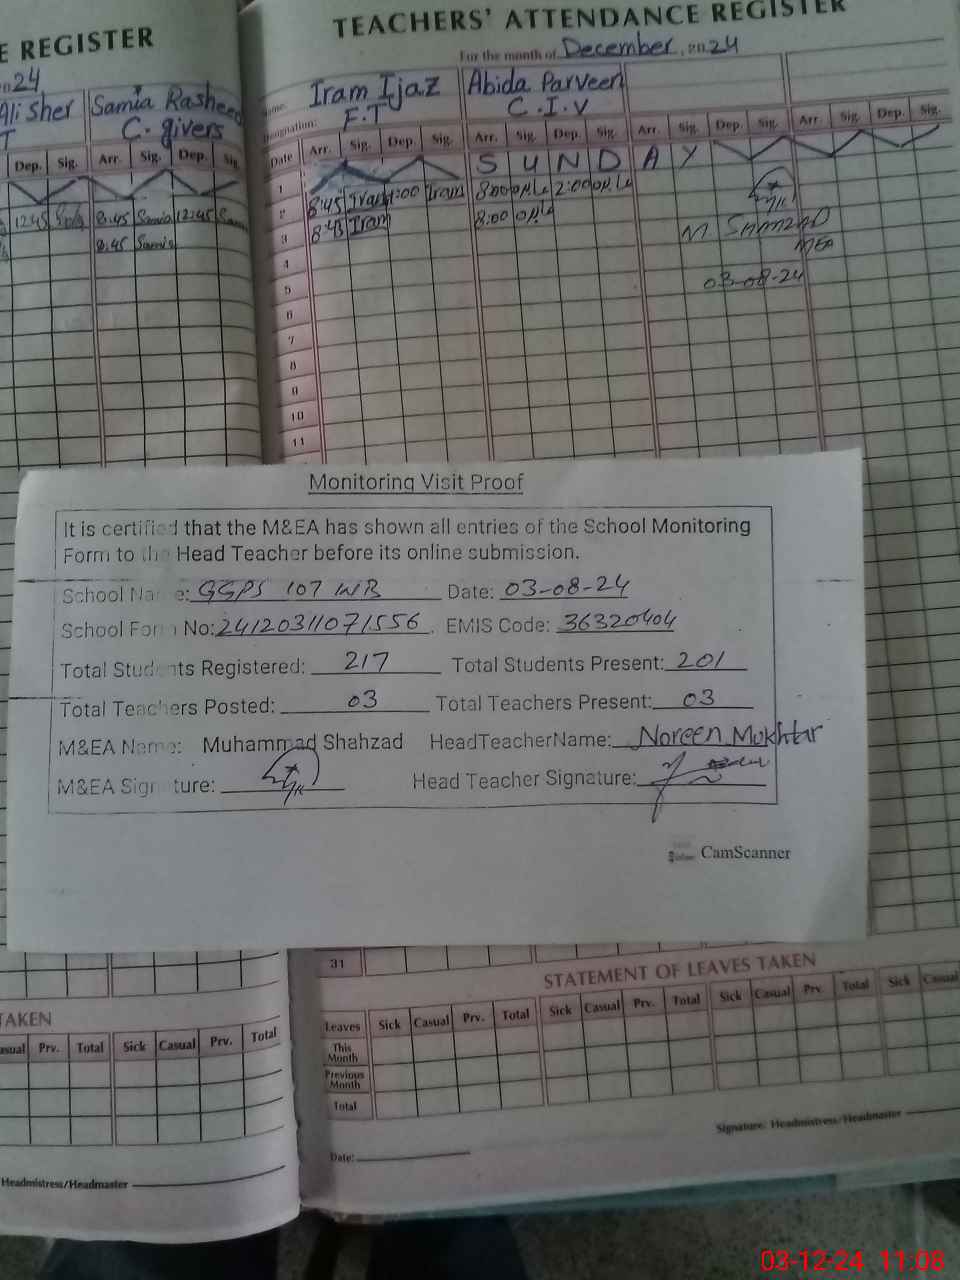 E REGISTER
TEACHERS' ATTENDANCE REGISTER
24
For the month of December, 2024
Ali Sher
Samia Rasheed
C. givers
Name: Iram Ijaz
Abida Parveen
Designation: F.T
C.I.V
Dep. Sig. Arr. Sig. Dep. Sig
Date Arr. Sig. Dep. Sig. Arr. Sig. Dep. Sig. Arr. Sig. Dep. Sig. Arr. Sig. Dep. Sig.
1 SUNDAY
12:45 8:45 Samia 12:45
2 8:45 Iram 1:00 Iram 8:00 2:00
8:45 Samia
3 8:45 Iram 8:00
M Shahzad
MEA
03-08-24
4
5
6
7
8
9
10
11
Monitoring Visit Proof
It is certified that the M&EA has shown all entries of the School Monitoring
Form to the Head Teacher before its online submission.
School Name: GGPS 107 WB Date: 03-08-24
School Form No: 24120311071556. EMIS Code: 36320404
Total Students Registered: 217 Total Students Present: 201
Total Teachers Posted: 03 Total Teachers Present: 03
M&EA Name: Muhammad Shahzad HeadTeacherName: Noreen Mukhtar
M&EA Signature: Head Teacher Signature:
CamScanner
31
STATEMENT OF LEAVES TAKEN
TAKEN
asual Prv. Total Sick Casual Prv. Total
Leaves Sick Casual Prv. Total Sick Casual Prv. Total Sick Casual Prv. Total Sick Casual
This Month
Previous Month
Total
Signature: Headmistress/Headmaster
Date:
Headmistress/Headmaster
03-12-24 11:08